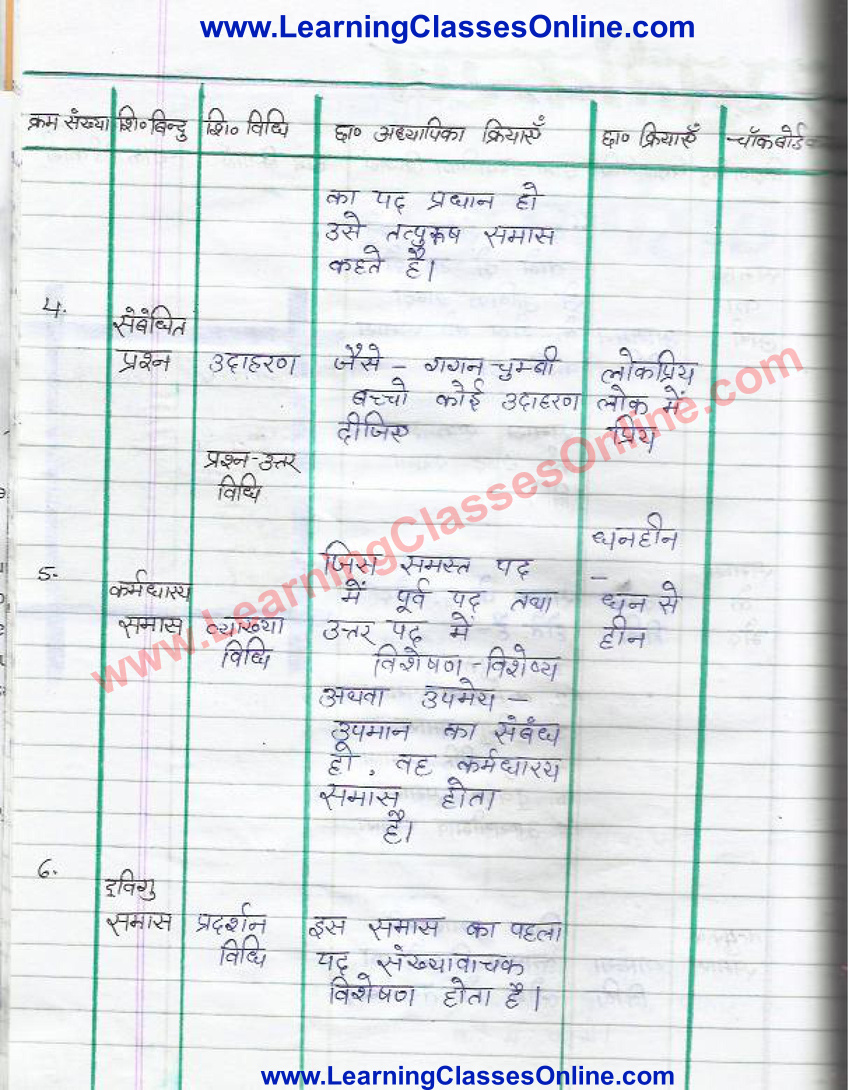 www.LearningClassesOnline.com
क्रम संख्या शि० बिन्दु शि० विधि छा० अध्यापिका क्रियाएँ छा० क्रियाएँ चॉकबोर्ड
का पद प्रधान हो
उसे तत्पुरूष समास
कहते है।
4.
संबंधित
प्रश्न उदाहरण जैसे - गगन चुम्बी लोकप्रिय
बच्चो कोई उदाहरण लोक में
दीजिए प्रिय
प्रश्न-उत्तर
विधि
धनहीन
5. जिस समस्त पद -
कर्मधारय में पूर्व पद तथा धन से
समास व्याख्या उत्तर पद में हीन
विधि विशेषण-विशेष्य
अथवा उपमेय -
उपमान का संबंध
हो, वह कर्मधारय
समास होता
है।
6.
द्विगु
समास प्रदर्शन इस समास का पहला
विधि पद संख्यावाचक
विशेषण होता है।
www.LearningClassesOnline.com
www.LearningClassesOnline.com